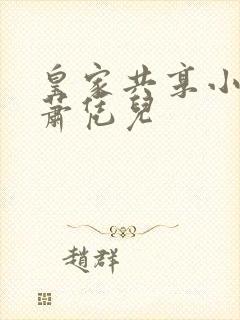 皇家共享小
蕭恁兒
趙群